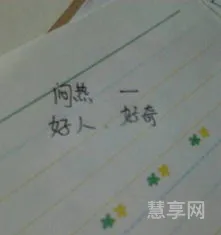 闷热 一
好人 好奇
慧享网